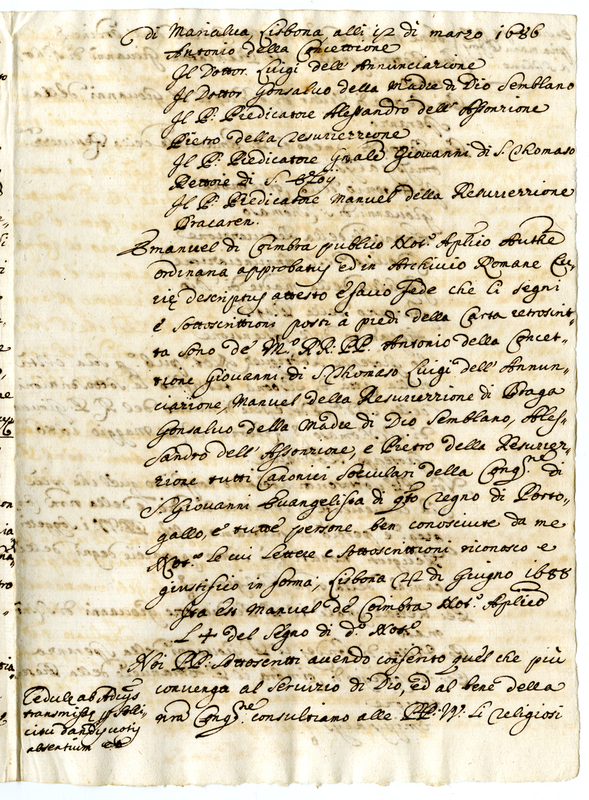 di Marialva, Lisbona, alli 12 di marzo 1686
Antonio della Concettione
Il Dottor. Luigi dell' Annunciazione
Il Dottor Gonsalvo della Madre di Dio Semblano
Il P. Predicatore Alessandro dell' Assonzione
Pietro della resurrezzione
Il P. Predicatore Giovanni di S. Thomaso
Rettore di S. Eloy
Il P. Predicatore Manuel della Resurrezzione
Bracaren.
Emanuel di Coimbra publico Not.º Aplico Autke
ordinaria approbatus ed in Archivio Romane Cu-
rię descriptus attesto è facio fede che li segni
è sottoscrittioni posti à piedi della Carta retroscrit-
ta sono de M.º RR. PP. Antonio della Concet-
tione Giovanni di S. Thomaso Luigi dell' Annun-
ciazione, Manuel della Resurrezzione di Braga
Gonsalvo della Madre di Dio Semblano, Ales-
sandro dell' Assonzione, e Pietro della Resurrez-
zione tutti Canonici Secolari della Cong.ne di
S. Giovanni Evangelista di gto regno di Porto-
gallo, e tutte persone ben conosciute da me
Not.º Le cui Lettere e sottoscrittioni riconosco e
giustifico in forma; Lisbona 22 di Giugno 1688
Ita est Manuel de Coimbra Not.º Aplico
L + del Segno di d.º Not.º
Noi PP. sottoscritti avendo conferito quel che più
convenga al Servizio di Dio, ed al bene della
nra Cong.ne consultiamo alle PP. VV. li religiosi
Cedule ab Adiys
transmisse p solli-
citu dandys votis
absentium